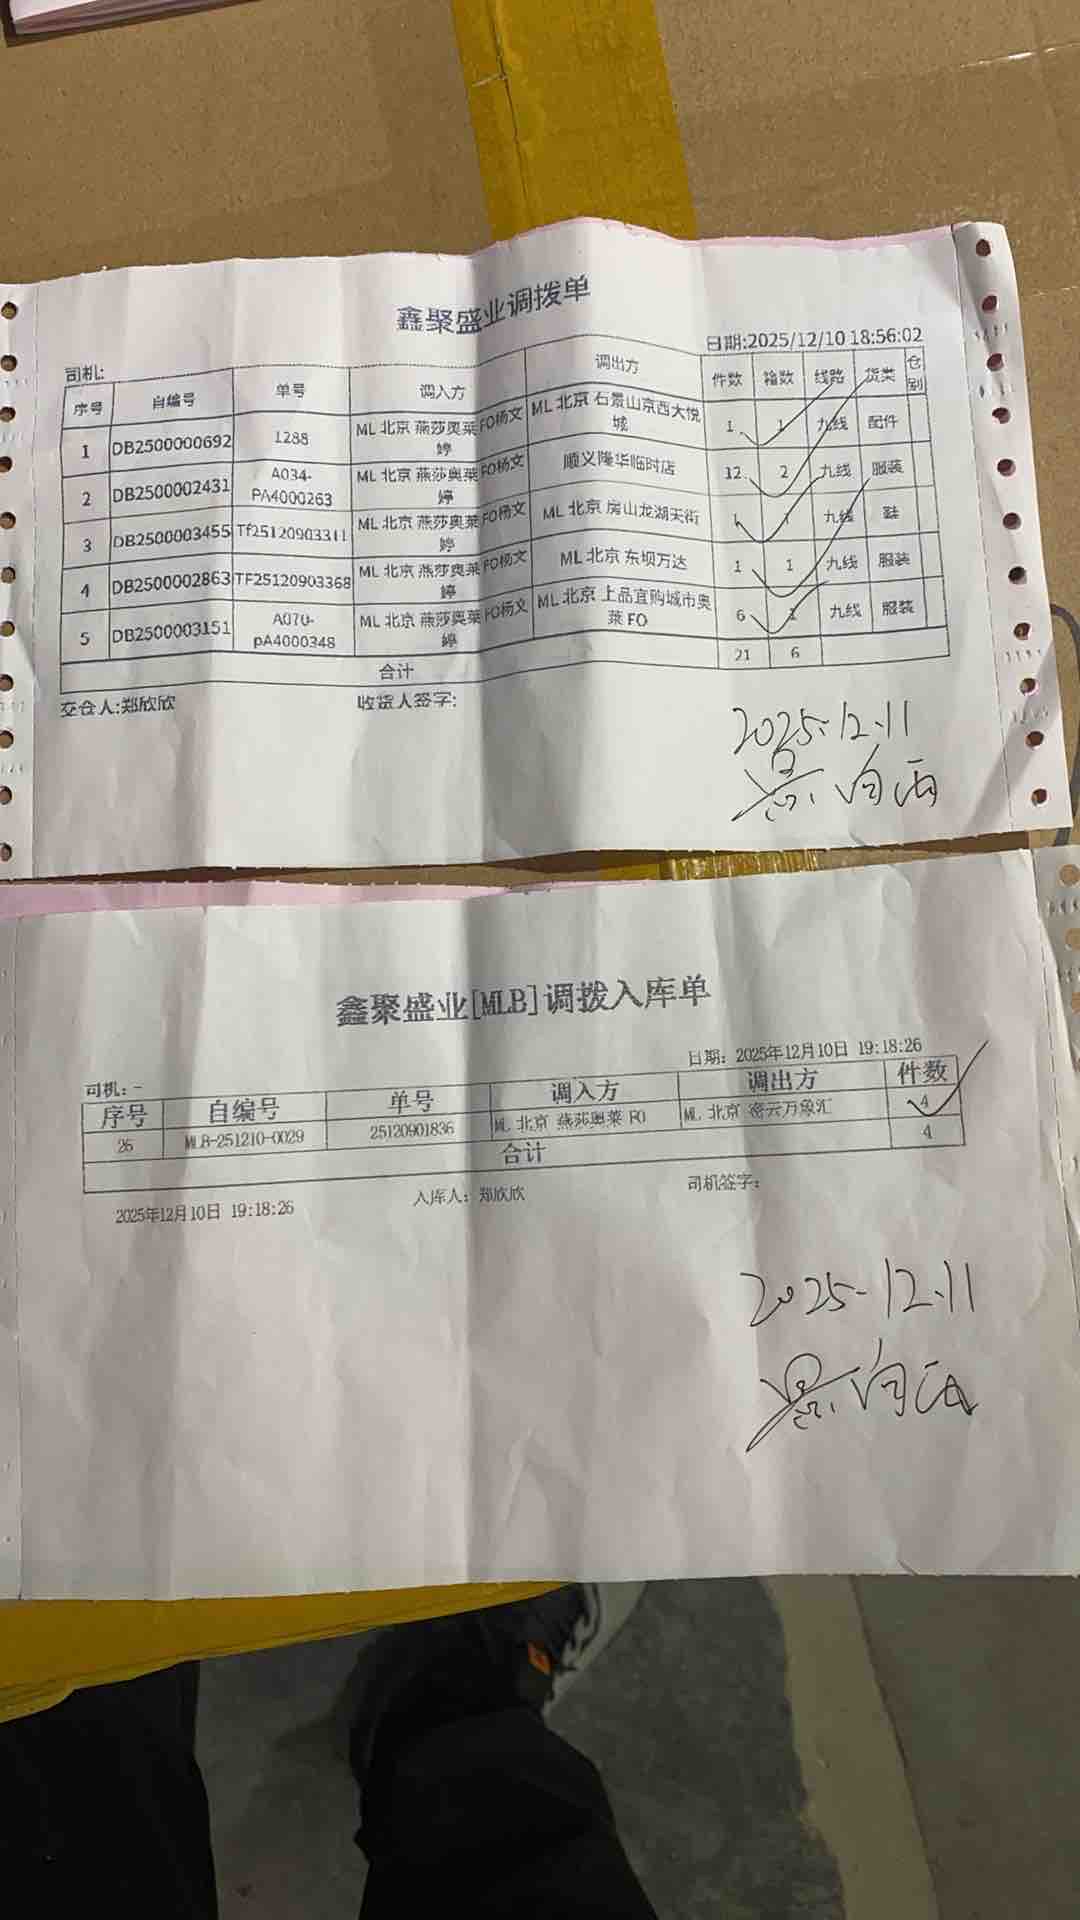 鑫聚盛业调拨单
司机: 日期:2025/12/10 18:56:02
序号 自编号 单号 调入方 调出方 件数 箱数 线路 货类 仓别
1 DB2500000692 1288 ML 北京 燕莎奥莱FO杨文婷 ML 北京 石景山京西大悦城 1 1 九线 配件
2 DB2500002431 A034-PA4000263 ML 北京 燕莎奥莱FO杨文婷 顺义隆华临时店 12 2 九线 服装
3 DB2500003455 Tf25120903311 ML 北京 燕莎奥莱FO杨文婷 ML 北京 房山龙湖天街 1 1 九线 鞋
4 DB2500002863 TF25120903368 ML 北京 燕莎奥莱FO杨文婷 ML 北京 东坝万达 1 1 九线 服装
5 DB2500003151 A070-pA4000348 ML 北京 燕莎奥莱FO杨文婷 ML 北京 上品宜购城市奥莱 FO 6 1 九线 服装
合计 21 6
交仓人:郑欣欣 收货人签字:
2025.12.11
鑫聚盛业[MLB]调拨入库单
司机: - 日期: 2025年12月10日 19:18:26
序号 自编号 单号 调入方 调出方 件数
26 MLB-251210-0029 25120901836 ML 北京 燕莎奥莱 FO ML 北京 密云万象汇 4
合计 4
2025年12月10日 19:18:26 入库人: 郑欣欣 司机签字:
2025-12.11